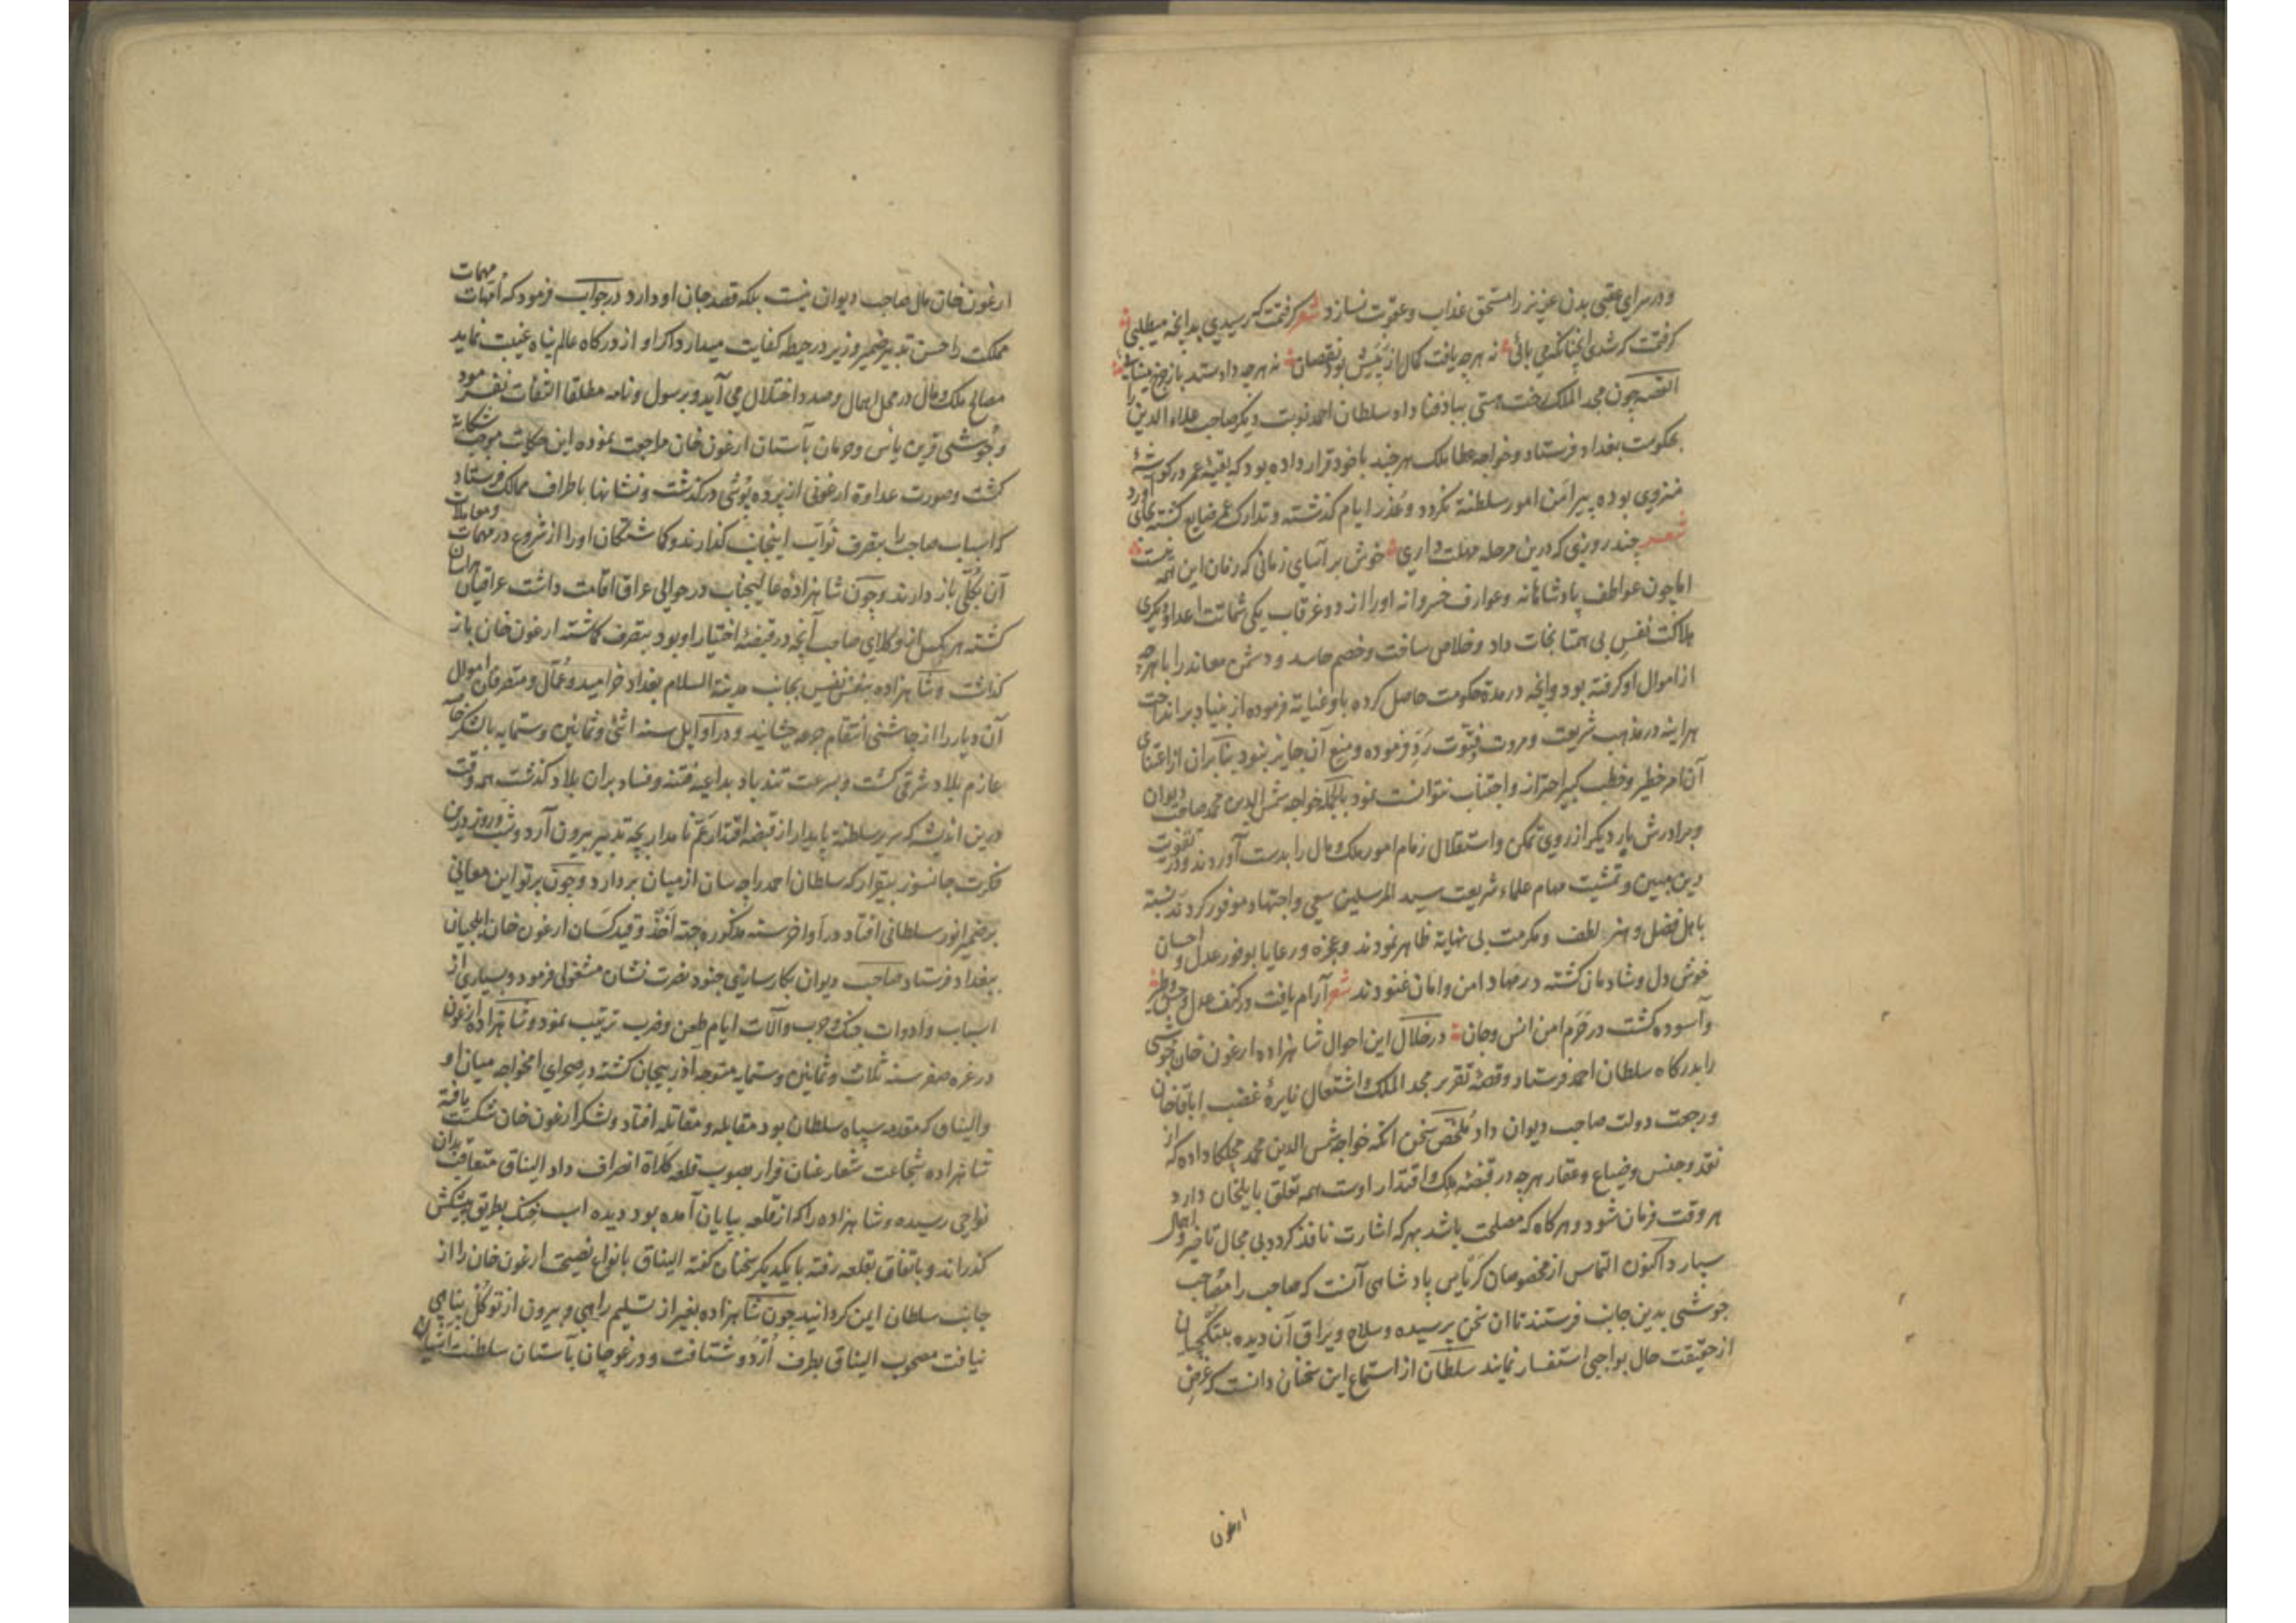 و در سرای عقبی بدن عزیز را مستحق عذاب و عقوبت نسازد شعر گرفتمت که رسیدی بدانچه میطلبی
گرفتمت که شدی آنچنانکه می بائی نه هرچه یافت کمال از پیش بود نقصان نه هرچه داد ستد باز چرخ مینایی
القصه چون مجد الملک رخت هستی بباد فنا داد سلطان احمد نوبت دیگر صاحب علاء الدین را
بحکومت بغداد فرستاد و خواجه عطا ملک هرچند با خود قرار داده بود که بقیه عمر در گوشه
منزوی بوده پیرامن امور سلطنة نگردد و عذر ایام گذشته و تدارک عمر ضایع گشته بجای آورد
شعر چند روزی که درین مرحله مهلت داری خوش برآسای زمانی که زمان این همه نیست
اما چون عواطف پادشاهانه و عوارف خسروانه او را از دو غرقاب یکی شماتت اعدا و دیگری
هلاکت نفس بی همتا نجات داد و خلاص ساخت و خصم حاسد و دشمن معاند را با هرچه
از اموال او گرفته بود و آنچه در مدة حکومت حاصل کرده باو عنایة فرموده از بنیاد برانداخت
هراینه در مذهب شریعت و مروت و فتوت رد فرموده و منع آن جایز نبود بنابران از اعتنای
آن امر خطیر و خطب کبیر احتراز و اجتناب نتوانست نمود بالجمله خواجه شمس الدین محمد صاحب دیوان
و برادرش بار دیگر از روی تمکن و استقلال زمام امور ملک و مال را بدست آوردند و در تقویت
دین مبین و تمشیت مهام علماء شریعت سید المرسلین سعی و اجتهاد موفور کردند نسبت
باهل فضل و هنر لطف و مکرمت بی نهایة ظاهر نمودند و عجزه و رعایا بوفور عدل و احسان
خوش دل و شادمان گشته در مهاد امن و امان غنودند شعر آرام یافت در کنف عدل وحش و طیر
و آسوده گشت در حرم امن انس و جان در خلال این احوال شاهزاده ارغون خان جوشی
را بدرگاه سلطان احمد فرستاد و قصه تقریر مجد الملک و اشتعال نایرۀ غضب اباقاخان
و رجعت دولت صاحب دیوان داد ملخص سخن آنکه خواجه شمس الدین محمد مچلکا داده که از
نقد و جنس و ضیاع و عقار هرچه در قبضه ملک و اقتدار اوست همه تعلق بایلخان دارد
هر وقت فرمان شود و هرگاه که مصلحت باشد بهر که اشارت نافذ گردد بی مجال تاخیر و اهمال
سپارد اکنون التماس از مخصوصان کریاس پادشاهی آنست که صاحب را مصاحب
جوشی بدین جانب فرستند تا آن سخن پرسیده و سلاح و یراق آن دیده بیتکچیان
از حقیقت حال بواجبی استفسار نمایند سلطان از استماع این سخنان دانست که غرض
ارغون
ارغون خان مال صاحب دیوان نیست بلکه قصد جان او دارد در جواب فرمود که امهات مهمات
مملکت را حسن تدبیر ضمیر وزیر در حیطه کفایت میدارد اگر او از درگاه عالم پناه غیبت نماید
مصالح ملک و مال در محل اهمال و صدد اختلال می آید و برسول و نامه مطلقا التفات نفرمود
و جوشی قرین یأس و حرمان بآستان ارغون خان مراجعت نموده این حکایت موجب شکایة
گشت و صورت عداوة ارغونی از پرده پوشی درگذشت و نشانها باطراف ممالک فرستاد
که اسباب صاحب را بتصرف نواب اینجانب گذارند و گماشتگان او را از شروع در مهمات و معاملات
آن بکلی باز دارند و چون شاهزاده عالیجناب در حوالی عراق اقامت داشت عراقیان هراسان
گشته هر یکس از وکلای صاحب آنچه در قبضه اختیار او بود بتصرف گماشته ارغون خان باز
گذاشت و شاهزاده بنفس نفیس بجانب مدینة السلام بغداد خرامید و عمال و متصرفان اموال
آن دیار را از چاشنی انتقام جرعه چشانید و در اوایل سنه اثنی و ثمانین و ستمایه بالشکر خاصه
عازم بلاد شرقی گشت و بسرعت تندباد بداعیه فتنه و فساد بران بلاد گذشت همه وقت
درین اندیشه که سریر سلطنة پایدار از قبضه اقتدار عم نامدار بچه تدبیر بیرون آرد و شب و روز درین
فکرت جانسوز بیقرار که سلطان احمد را چه سان از میان بردارد و چون پرتو این معانی
بر ضمیر انور سلطانی افتاد در اواخر سنه مذکوره جهة اخذ و قید کسان ارغون خان ایلچیان
ببغداد فرستاد صاحب دیوان بکارسازی جنود نصرت نشان مشغولی فرمود و بسیاری از
اسباب و ادوات جنک و حرب و آلات ایام طعن و ضرب ترتیب نمود و شاهزاده ارغون
در غره صفر سنه ثلاث و ثمانین و ستمایه متوجه آذربیجان گشته در صحرای آمخواجه میان او
و الیناق که مقدمه سپاه سلطان بود مقابله و مقاتله افتاد و لشکر ارغون خان شکست یافته
شاهزاده شجاعت شعار عنان فرار بصوب قلعه کلاة انصراف داد الیناق متعاقب بدان
نواحی رسیده و شاهزاده را که از قلعه بپایان آمده بود دیده اسب خنک بطریق پیشکش
گذراند و باتفاق بقلعه رفته با یکدیگر سخنان گفته الیناق بانواع نصیحت ارغون خان را از
جانب سلطان ایمن گردانید چون شاهزاده بغیر از تسلیم راهی و بیرون از توکل پناهی
نیافت مصحوب الیناق بطرف اردو شتافت و در غوچان بآستان سلطنت آشیان